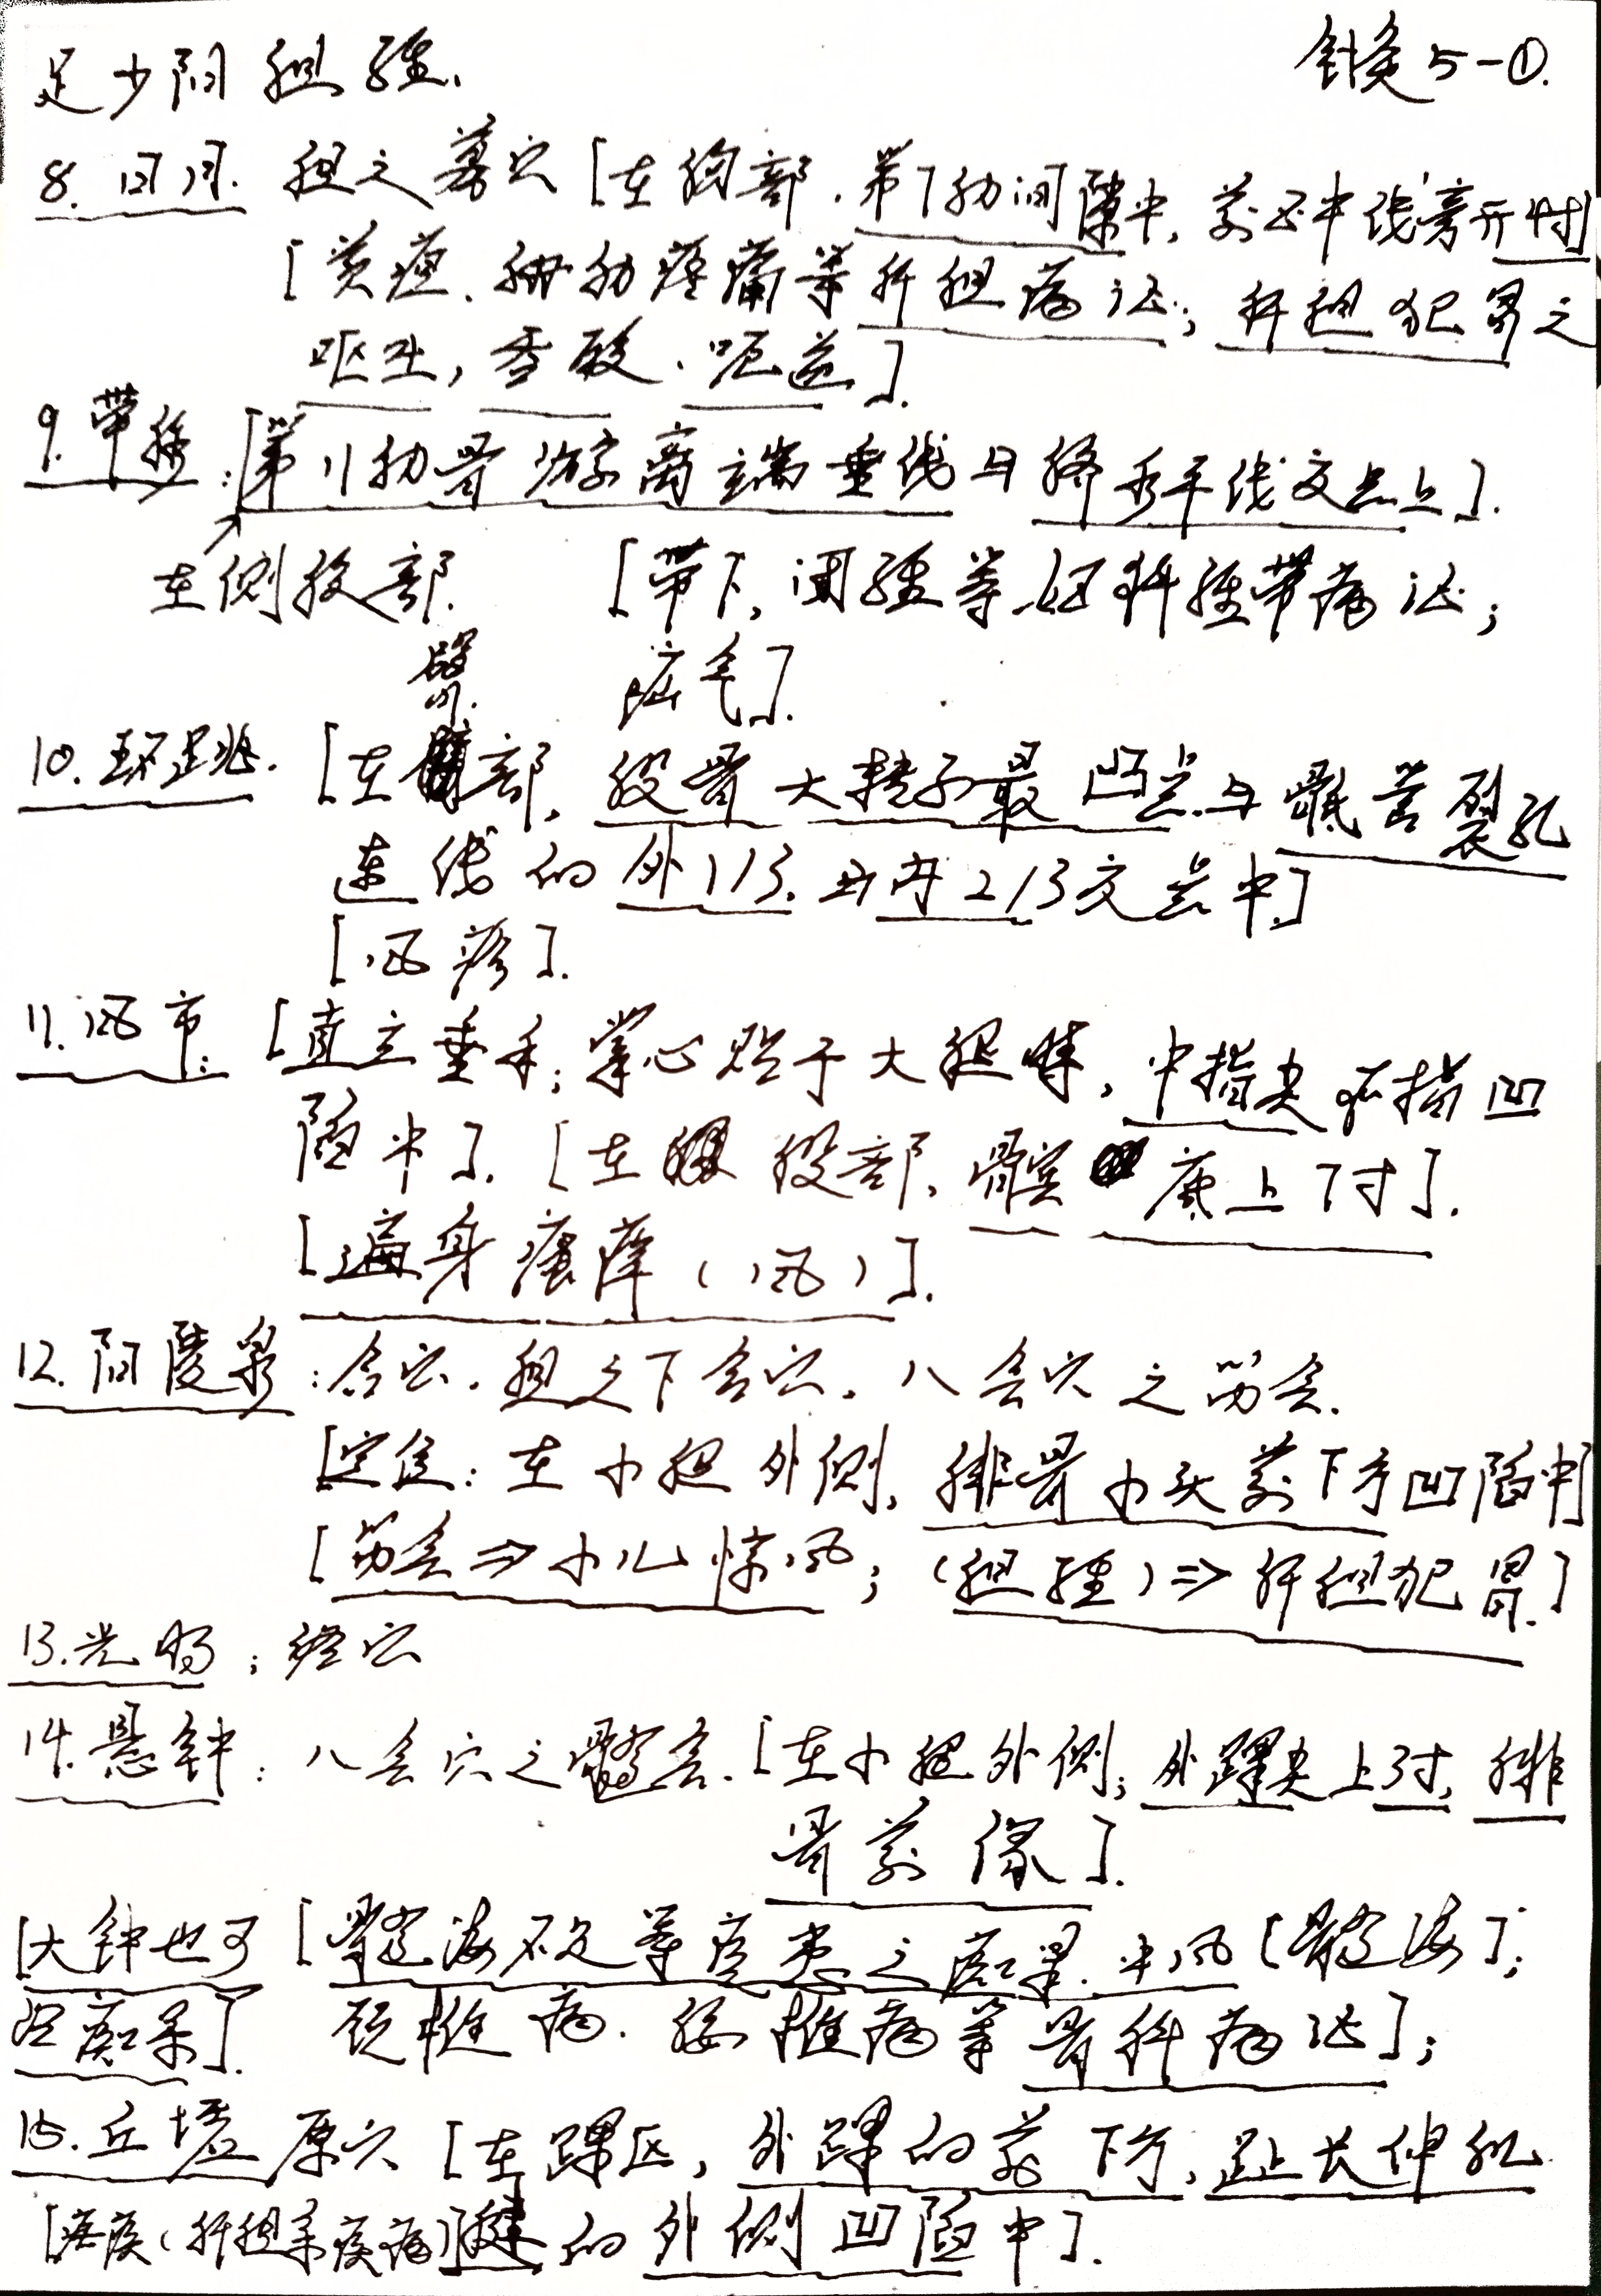 足少阳胆经.
针灸5-①.
8. 日月. 胆之募穴[在胸部.第7肋间隙中,前正中线旁开4寸]
[黄疸、胁肋疼痛等肝胆病证;肝胆犯胃之
呕吐,吞酸、呃逆].
9.带脉:[第11肋骨游离端垂线与脐水平线交点上].
在侧腹部. [带下,闭经等妇科经带病证;
疝气].
臀.
10.环跳. [在臀部,股骨大转子最凸点与骶管裂孔
连线的外1/3与内2/3交点中]
[风疹].
11.风市: [直立垂手;掌心贴于大腿时,中指尖所指凹
陷中]. [在股部,髌底上7寸].
[遍身瘙痒(风)].
12.阳陵泉:合穴.胆之下合穴.八会穴之筋会.
[定位:在小腿外侧,腓骨小头前下方凹陷中]
[筋会⇒小儿惊风;(胆经)⇒肝胆犯胃.]
13.光明;络穴
14.悬钟:八会穴之髓会.[在小腿外侧;外踝尖上3寸,腓
骨前缘].
[大钟也可 [髓海不足等虚患之痴呆.中风[髓海];
治痴呆]. 颈椎病.腰椎病等骨科病证];
15.丘墟 原穴[在踝区,外踝的前下方,趾长伸肌
[疟疾(肝胆系疾病)]腱的外侧凹陷中].